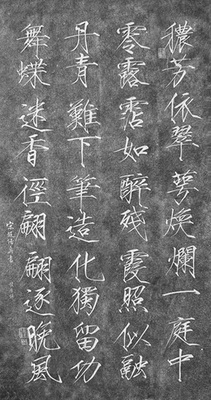 穠芳依翠萼煥爛一庭中
零露霑如醉殘霞照似融
丹青難下筆造化獨留功
舞蝶迷香徑翩翩逐晚風